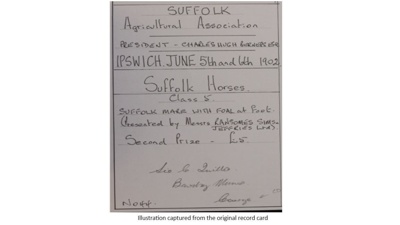 SUFFOLK
Agricultural Association
PRESIDENT - CHARLES HUGH
IPSWICH, JUNE 5th and 6th 1902
Suffolk Horses
Class 5.
SUFFOLK MARE WITH FOAL at Foot.
Presented by Messrs RANSOMES SIMS
JEFFERIES Ltd)
Second Prize - £5
No 44.
Illustration captured from the original record card